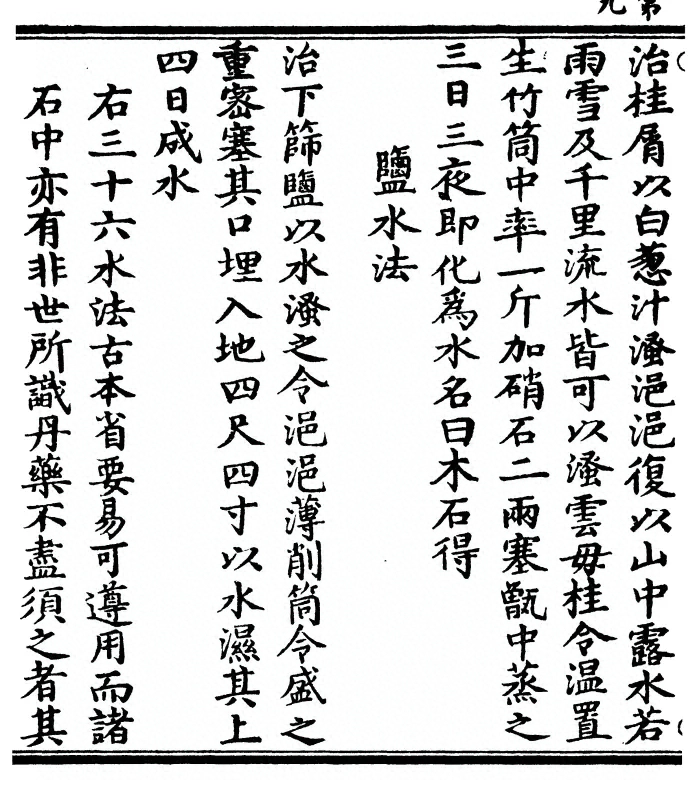 治桂屑以白蔥汁溲浥浥復以山中露水若
雨雪及千里流水皆可以溲雲毋桂令温置
生竹筒中率一斤加硝石二兩塞甑中蒸之
三日三夜即化爲水名曰木石得
鹽水法
治下篩鹽以水溲之令浥浥薄削筒令盛之
重密塞其口埋入地四尺四寸以水濕其上
四日成水
右三十六水法古本省要易可遵用而諸
石中亦有非世所識丹藥不盡須之者其